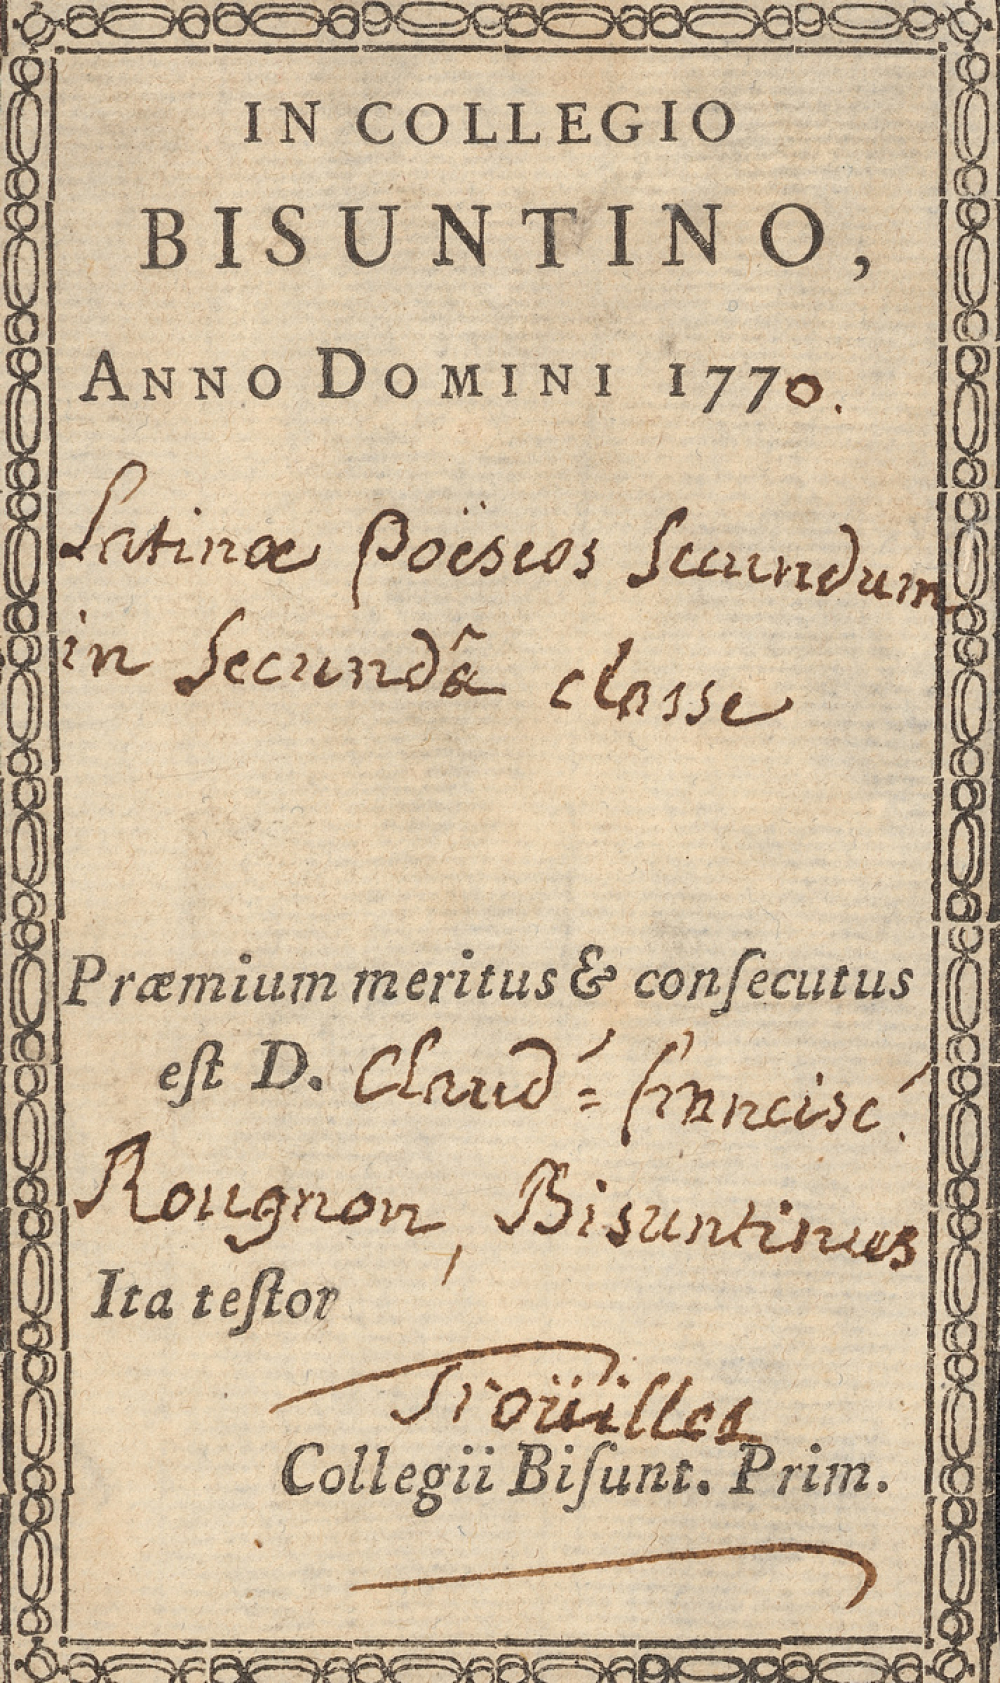 IN COLLEGIO
BISUNTINO,
ANNO DOMINI 1770.
Latinæ Poëseos Secundum
in Secundâ classe
Præmium meritus & conſecutus
eſt D. Claud' = francisc'.
Rougnon, Bisuntinus
Ita teſtor
Trouillet
Collegii Biſunt. Prim.